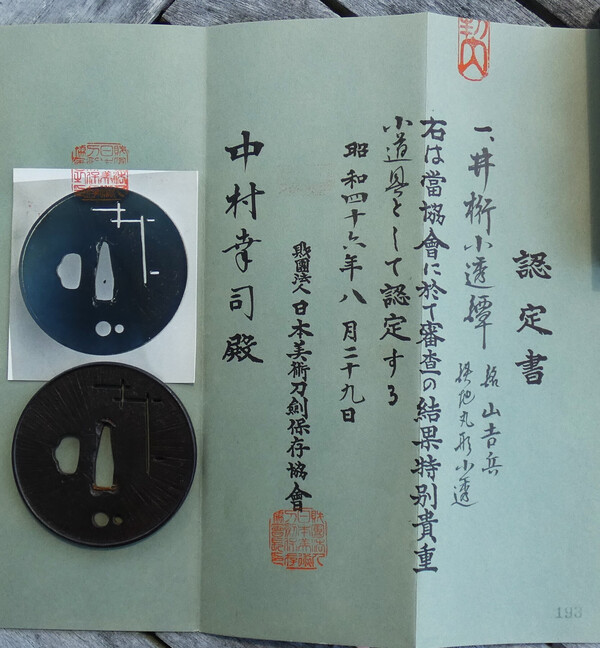 認定書
一、井桁小透鐔
銘 山吉兵
鉄地丸形小透
右は當協會に於て審査の結果特別貴重
小道具として認定する
昭和四十六年八月二十九日
財團法人日本美術刀劍保存協會
中村幸司殿
193